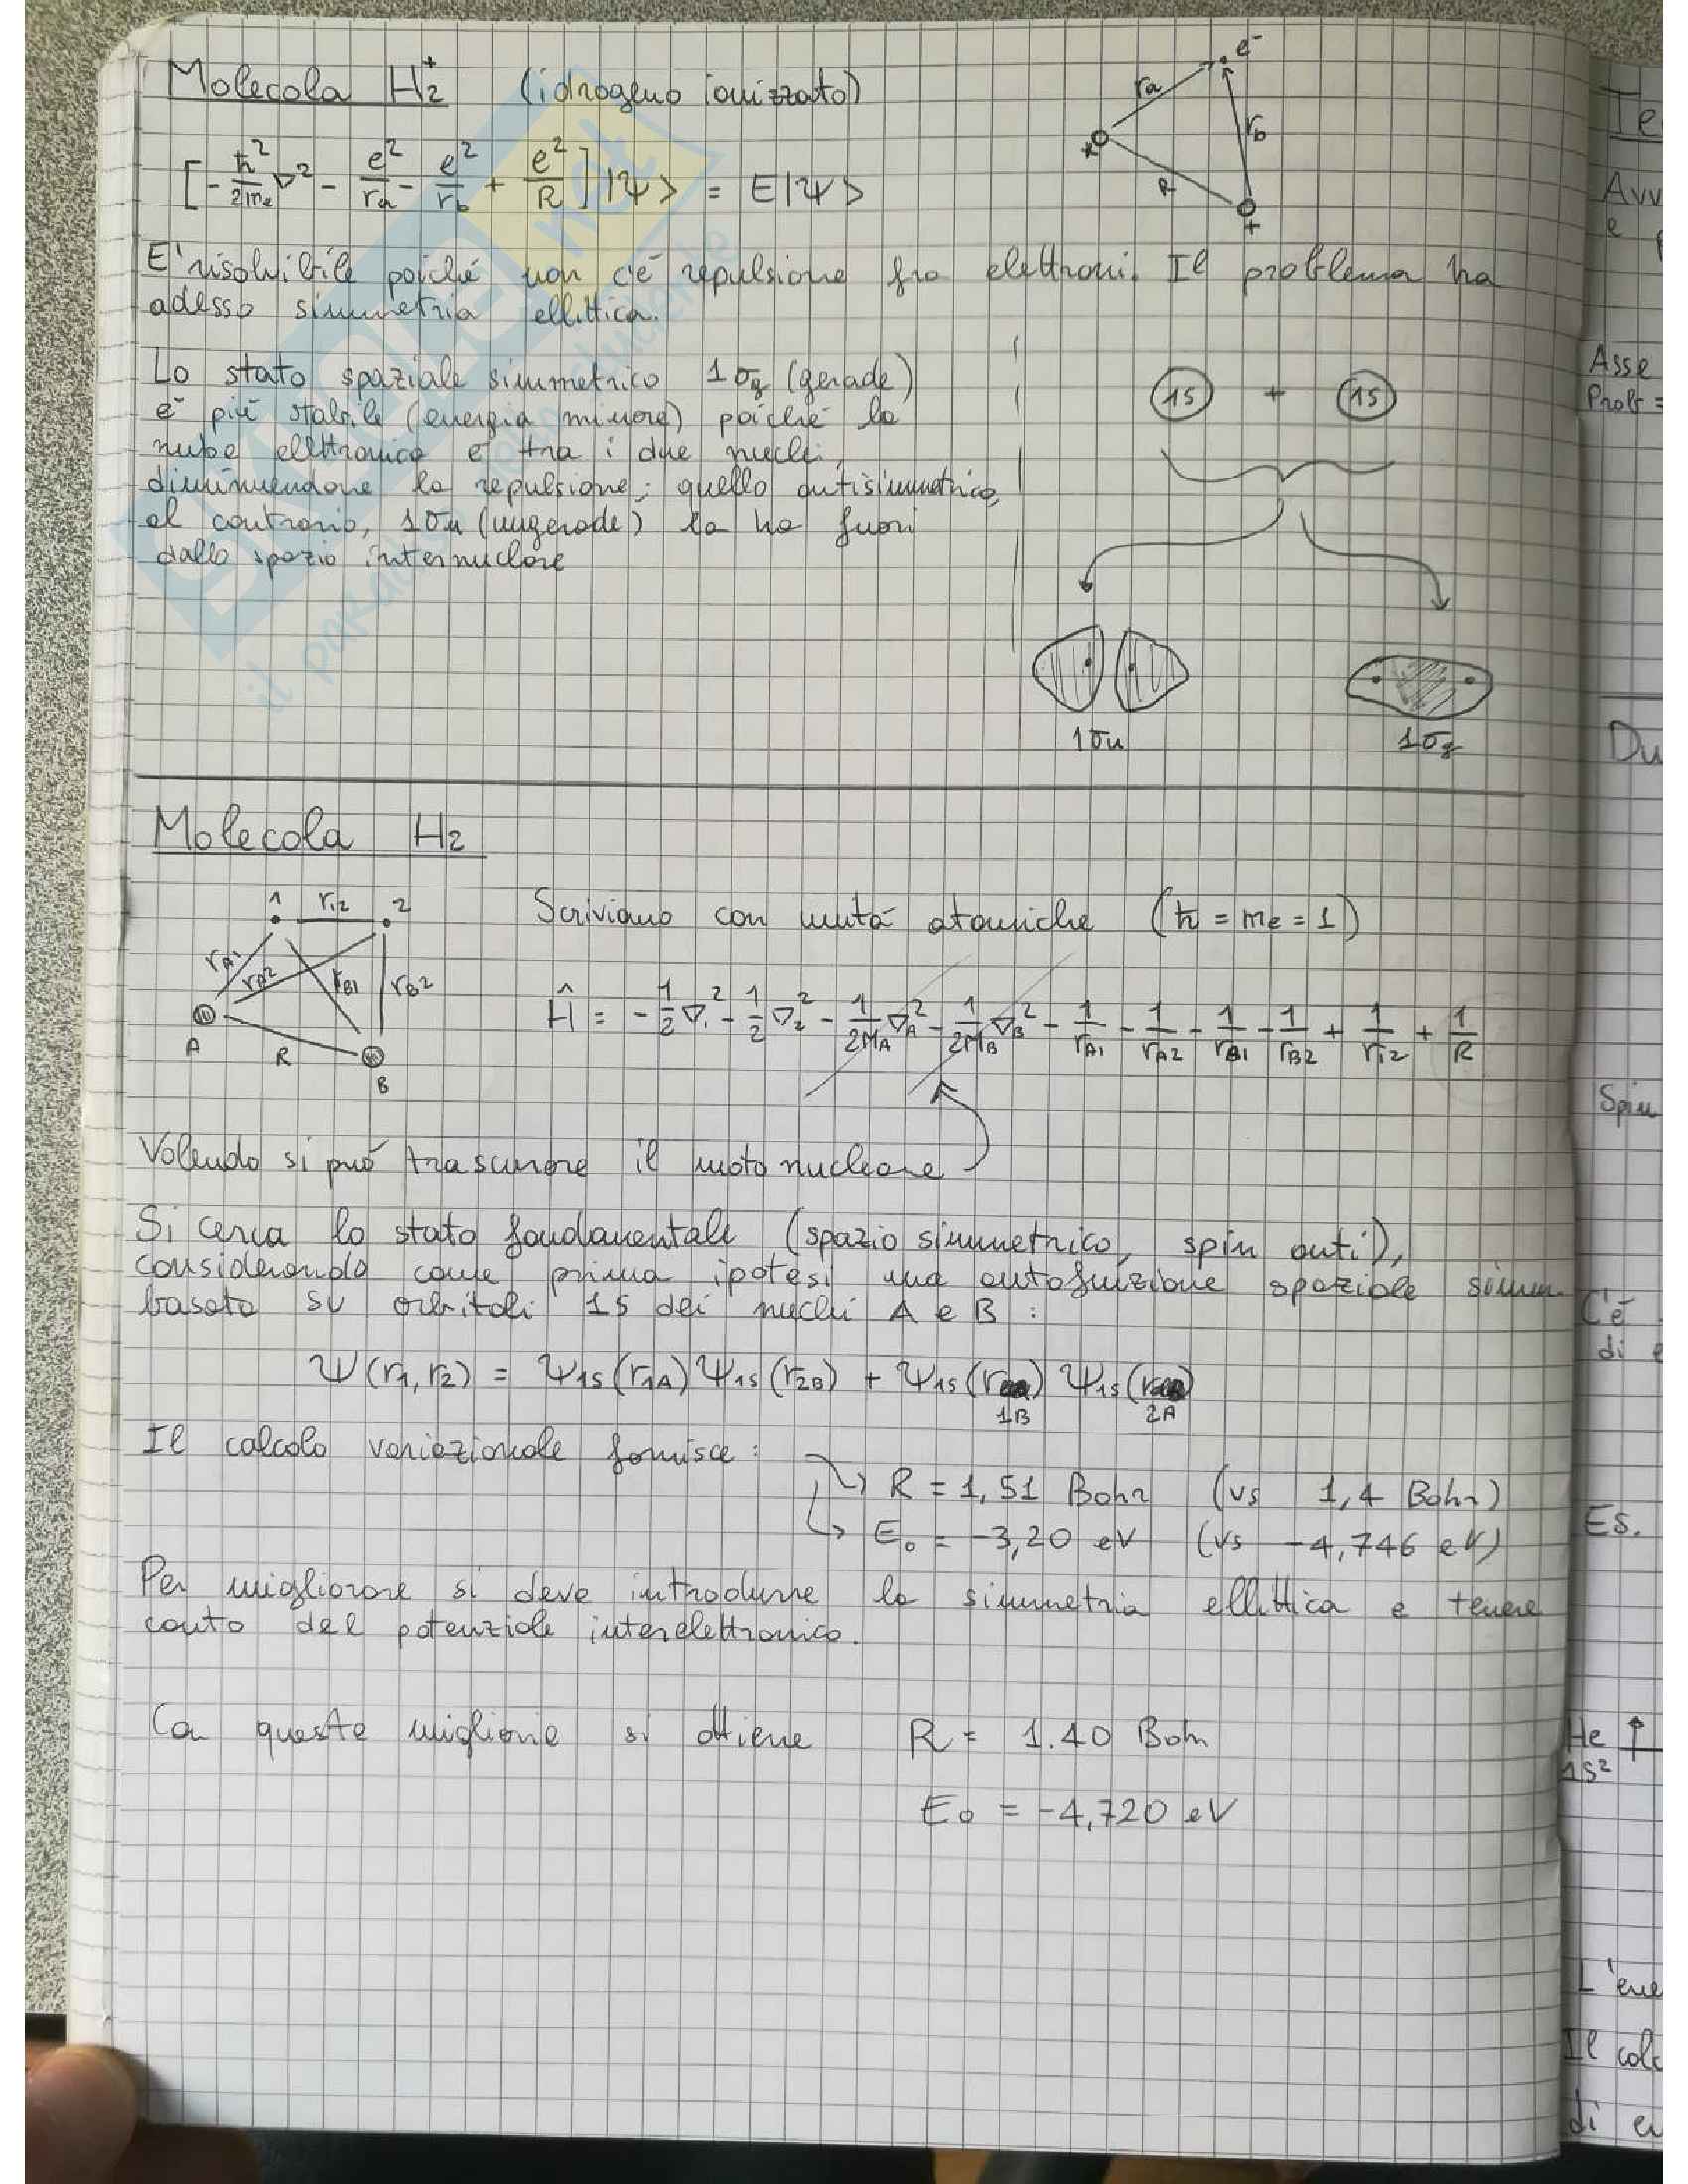 Molecola H₂⁺ (idrogeno ionizzato)
e⁻
ra
rb
R
+
+
[-ħ²/2me ∇² - e²/ra - e²/rb + e²/R] |ψ> = E|ψ>
E' risolvibile poiché non c'é repulsione fra elettroni. Il problema ha
adesso simmetria ellittica.
Lo stato spaziale simmetrico 1σg (gerade)
é piú stabile (energia minore) poiché la
nube elettronica é tra i due nuclei,
diminuendone la repulsione; quello antisimmetrico,
al contrario, 1σu (ungerade) la ha fuori
dallo spazio internucleare
1S + 1S
1σu
1σg
Molecola H₂
1 r₁₂ 2
rA1 rA2 rB1 rB2
A R B
Scriviamo con unitá atomiche (ħ = me = 1)
Ĥ = -1/2 ∇₁² - 1/2 ∇₂² - 1/2MA ∇A² - 1/2MB ∇B² - 1/rA1 - 1/rA2 - 1/rB1 - 1/rB2 + 1/r12 + 1/R
Volendo si puó trascurare il moto nucleare
Si cerca lo stato fondamentale (spazio simmetrico, spin anti),
considerando come prima ipotesi una autofunzione spaziale simm.
basata su orbitali 1s dei nuclei A e B :
Ψ(r₁,r₂) = Ψ1s(r1A) Ψ1s(r2B) + Ψ1s(r1B) Ψ1s(r2A)
Il calcolo variazionale fornisce :
R = 1,51 Bohr (vs 1,4 Bohr)
E₀ = -3,20 eV (vs -4,746 eV)
Per migliorare si deve introdurre la simmetria ellittica e tenere
conto del potenziale interelettronico.
Con queste migliorie si ottiene R = 1.40 Bohr
E₀ = -4,720 eV
Te
Avv
e
Asse
Prob =
Du
Spin
C'é
di e
Es.
He ↑
1s²
L'ene
Il calc
di en